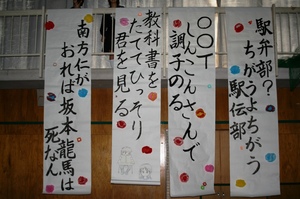 駅弁部？
ちがうよちがう
駅伝部
○○T
しんこんさんで
調子のる
教科書を
たててひっそり
君を見る
南方仁が
おれは坂本龍馬は
死なん